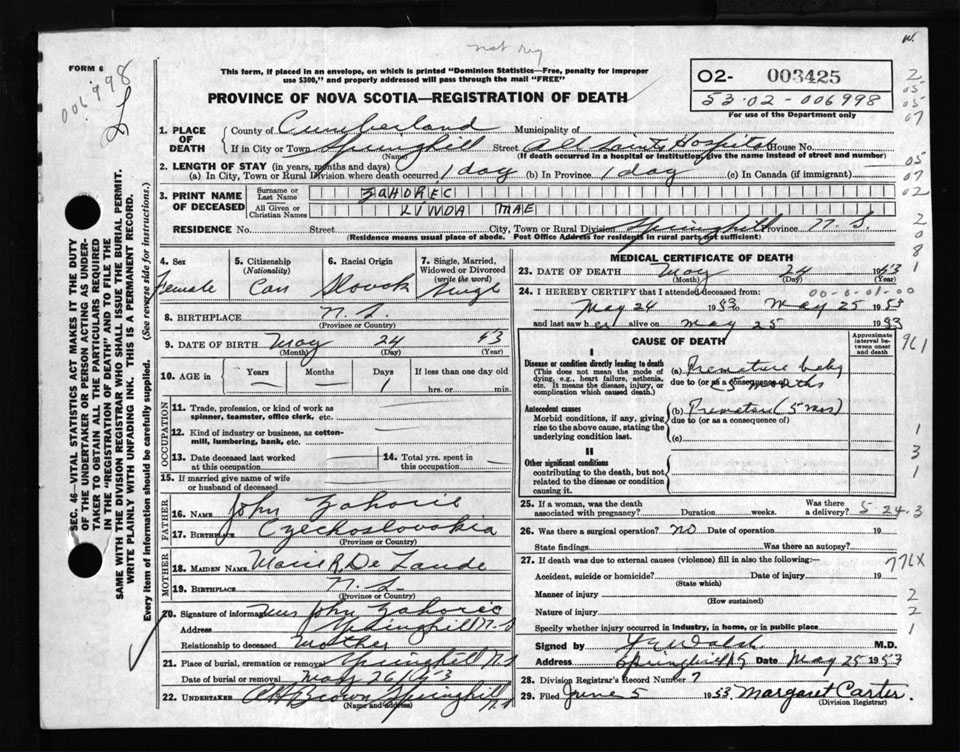 not reg
FORM 6
006998
This form, if placed in an envelope, on which is printed "Dominion Statistics—Free, penalty for improper
use $300," and properly addressed will pass through the mail "FREE"
PROVINCE OF NOVA SCOTIA—REGISTRATION OF DEATH
02- 003425
53-02-006998
For use of the Department only
SEC. 46—VITAL STATISTICS ACT MAKES IT THE DUTY
OF THE UNDERTAKER OR PERSON ACTING AS UNDER-
TAKER TO OBTAIN ALL THE PARTICULARS REQUIRED
IN THE "REGISTRATION OF DEATH" AND TO FILE THE
SAME WITH THE DIVISION REGISTRAR WHO SHALL ISSUE THE BURIAL PERMIT.
WRITE PLAINLY WITH UNFADING INK. THIS IS A PERMANENT RECORD.
Every item of information should be carefully supplied. (See reverse side for instructions.)
1. PLACE OF DEATH
County of Cumberland Municipality of
If in City or Town Springhill Street All Saints Hospital House No.
(Name) (If death occurred in a hospital or institution, give the name instead of street and number)
2. LENGTH OF STAY (in years, months and days)
(a) In City, Town or Rural Division where death occurred 1 day (b) In Province 1 day (c) In Canada (if immigrant)
3. PRINT NAME OF DECEASED
Surname or Last Name ZAHOREC
All Given or Christian Names LINDA MAE
RESIDENCE No. Street City, Town or Rural Division Springhill Province N. S.
(Residence means usual place of abode. Post Office Address for residents in rural parts not sufficient)
4. Sex Female
5. Citizenship (Nationality) Can
6. Racial Origin Slovak
7. Single, Married, Widowed or Divorced (write the word) Single
8. BIRTHPLACE N. S.
(Province or Country)
9. DATE OF BIRTH May 24 53
(Month) (Day) (Year)
10. AGE in Years — Months — Days 1 If less than one day old
hrs. or min.
OCCUPATION
11. Trade, profession, or kind of work as
spinner, teamster, office clerk, etc.
12. Kind of industry or business, as cotton-
mill, lumbering, bank, etc.
13. Date deceased last worked
at this occupation
14. Total yrs. spent in
this occupation
15. If married give name of wife
or husband of deceased
FATHER
16. NAME John Zahorec
17. BIRTHPLACE Czechoslovakia
(Province or Country)
MOTHER
18. MAIDEN NAME Marie R De
19. BIRTHPLACE N. S.
(Province or Country)
20. Signature of informant Mrs John Zahorec
Address Springhill N. S
Relationship to deceased Mother
21. Place of burial, cremation or removal Springhill N. S
Date of burial or removal May 26/53
22. UNDERTAKER A H Brown Springhill N. S
(Name and address)
MEDICAL CERTIFICATE OF DEATH
23. DATE OF DEATH May 24 1953
(Month) (Day) (Year)
24. I HEREBY CERTIFY that I attended deceased from: 00-0-01-00
May 24 1953 to May 25 1953
and last saw her alive on May 25 1953
CAUSE OF DEATH
Approximate interval between onset and death
I
Disease or condition directly leading to death
(This does not mean the mode of
dying, e.g., heart failure, asthenia,
etc. It means the disease, injury, or
complication which caused death.)
(a) Premature baby
due to (or as a consequence of)
(5 months
Antecedent causes
Morbid conditions, if any, giving
rise to the above cause, stating the
underlying condition last.
(b) Premature (5 mos)
due to (or as a consequence of)
(c)
II
Other significant conditions
contributing to the death, but not
related to the disease or condition
causing it.
25. If a woman, was the death
associated with pregnancy? Duration weeks. Was there
a delivery? 5 24-3
26. Was there a surgical operation? NO Date of operation 19
State findings Was there an autopsy?
27. If death was due to external causes (violence) fill in also the following:—
Accident, suicide or homicide? Date of injury 19
(State which)
Manner of injury
(How sustained)
Nature of injury
Specify whether injury occurred in industry, in home, or in public place
Signed Walsh M.D.
Address Springhill N S Date May 25 1953
28. Division Registrar's Record Number 7
29. Filed June 5 1953. Margaret Carter.
(Division Registrar)
05
07
05
07
02
2
0
8
1
961
1
3
1
776X
2
2
1